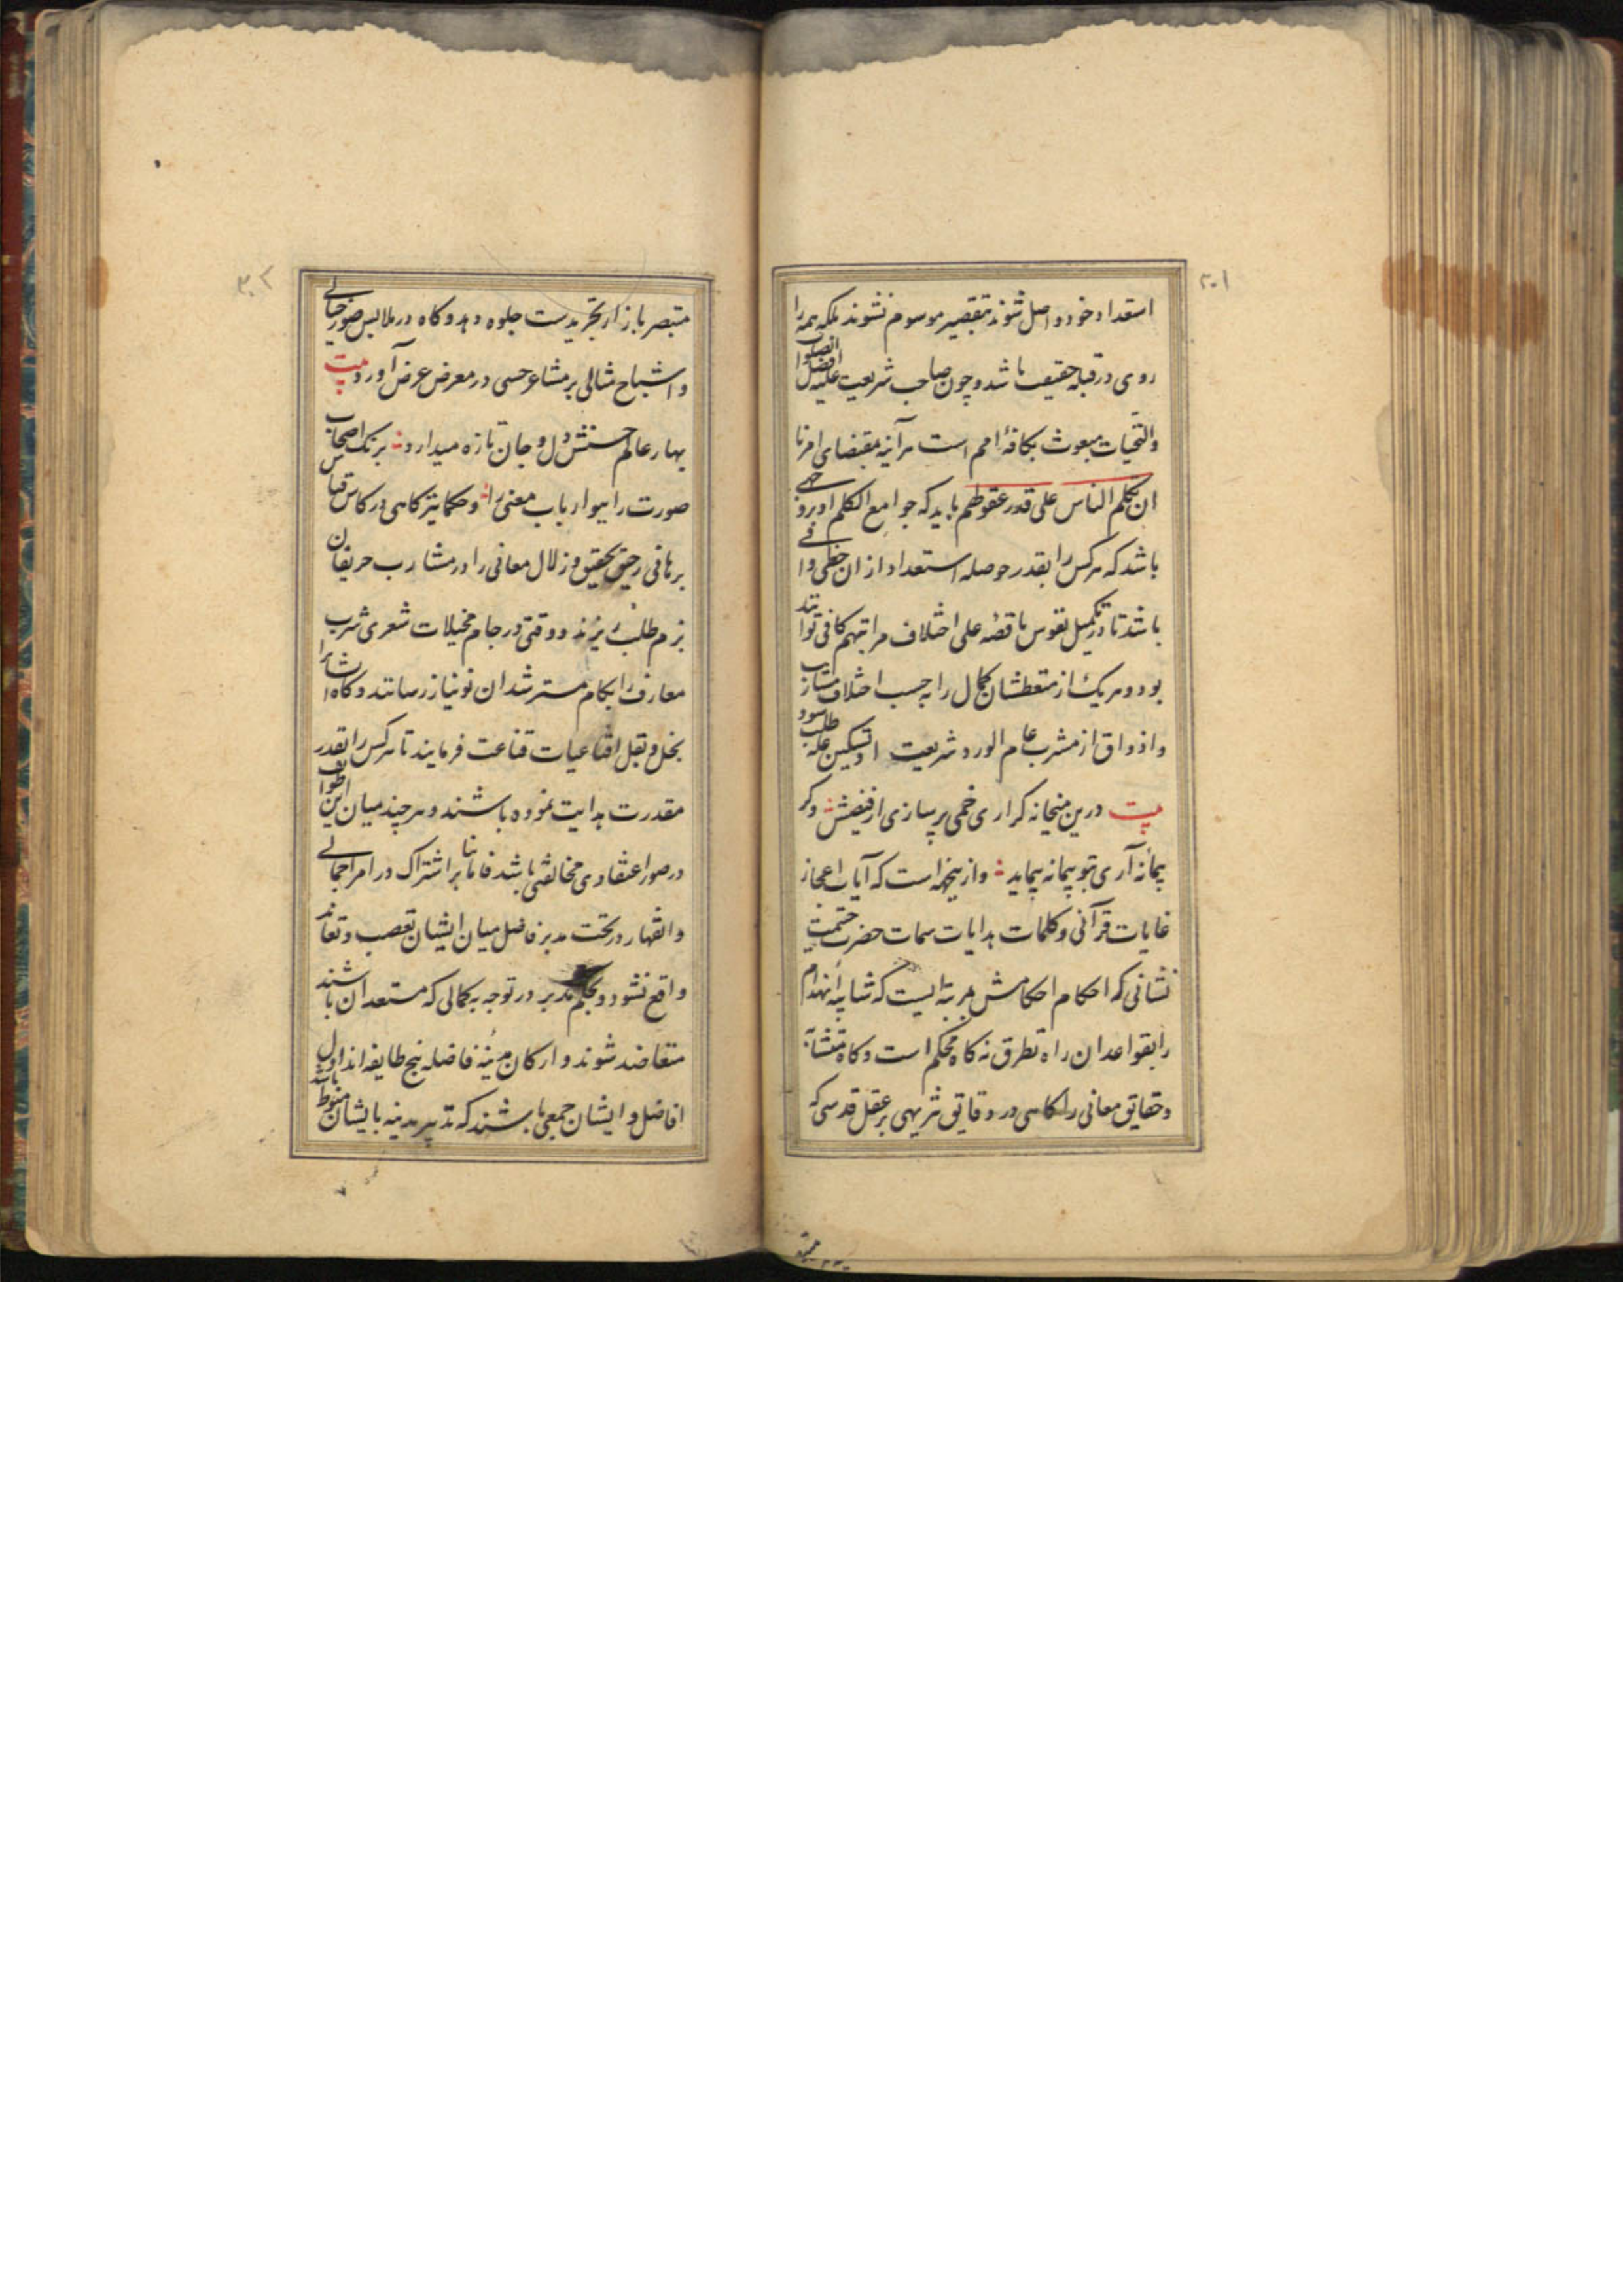 ۳۰۱
استعداد خود واصل شوند بتقصیر موسوم نشوند بلکه همه را
روی در قبله حقیقت باشد و چون صاحب شریعت علیه افضل الصلوات
والتحیات مبعوث بکافهٔ امم است هرآینه بمقتضای امرنا
ان نکلم الناس علی قدر عقولهم باید که جوامع الکلم او بروجهی
باشد که هرکس را بقدر حوصله استعداد ازان حظی وافی
باشد تا در تکمیل نفوس ناقصه علی اختلاف مراتبهم کافی تواند
بود و هریک از متعطشان کمال را بحسب اختلاف مشارب
واذواق از مشرب عام الورود شریعت او تسکین غله طلب شود
بیت درین میخانه کر اری خمی پرسازی از فیضش وکر
پیمانه آری تو پیمانه پیماید وازینجهة است که آیات اعجاز
غایات قرآنی و کلمات هدایات سمات حضرت ختمیت
نشانی که احکام احکامش بمرتبه ایست که شایبه انهدام
را بقواعد ان راه تطرق نه کاه محکم است و کاه متشابه
و حقایق معانی را کاهی در دقایق تنزیهی بر عقل قدسی که
۳۰۲
متبصر بازار تجریدست جلوه دهد و کاه در ملابس صور خیالی
و اشباح مثالی بر مشاعر حسی در معرض عرض آورد بیت
بهار عالم حسنش دل و جان تازه میدارد برنک اصحاب
صورت را ببو ارباب معنی را و حکما نیز کاهی در کاس قیاس
برهانی رحیق تحقیق و زلال معانی را در مشارب حریفان
بزم طلب ریزند و وقتی در جام مخیلات شعری شرب
معارف را بکام مسترشدان نونیاز رسانند و کاه اشانرا
بخل و بقل اقناعیات قناعت فرمایند تا هرکس را بقدر
مقدرت هدایت نموده باشند و هرچند میان این طوایف
در صور اعتقادی مخالفتی باشد فاما بنا بر اشتراک در امر اجمالی
و انقهار در تحت مدبر فاضل میان ایشان تعصب و تعاند
واقع نشود و بحکم مدبر در توجه بکمالی که مستعد ان باشند
متعاضد شوند و ارکان مدینه فاضله پنج طایفه اند اول
افاضل و ایشان جمعی باشند که تدبیر مدینه بایشان منوط باشد